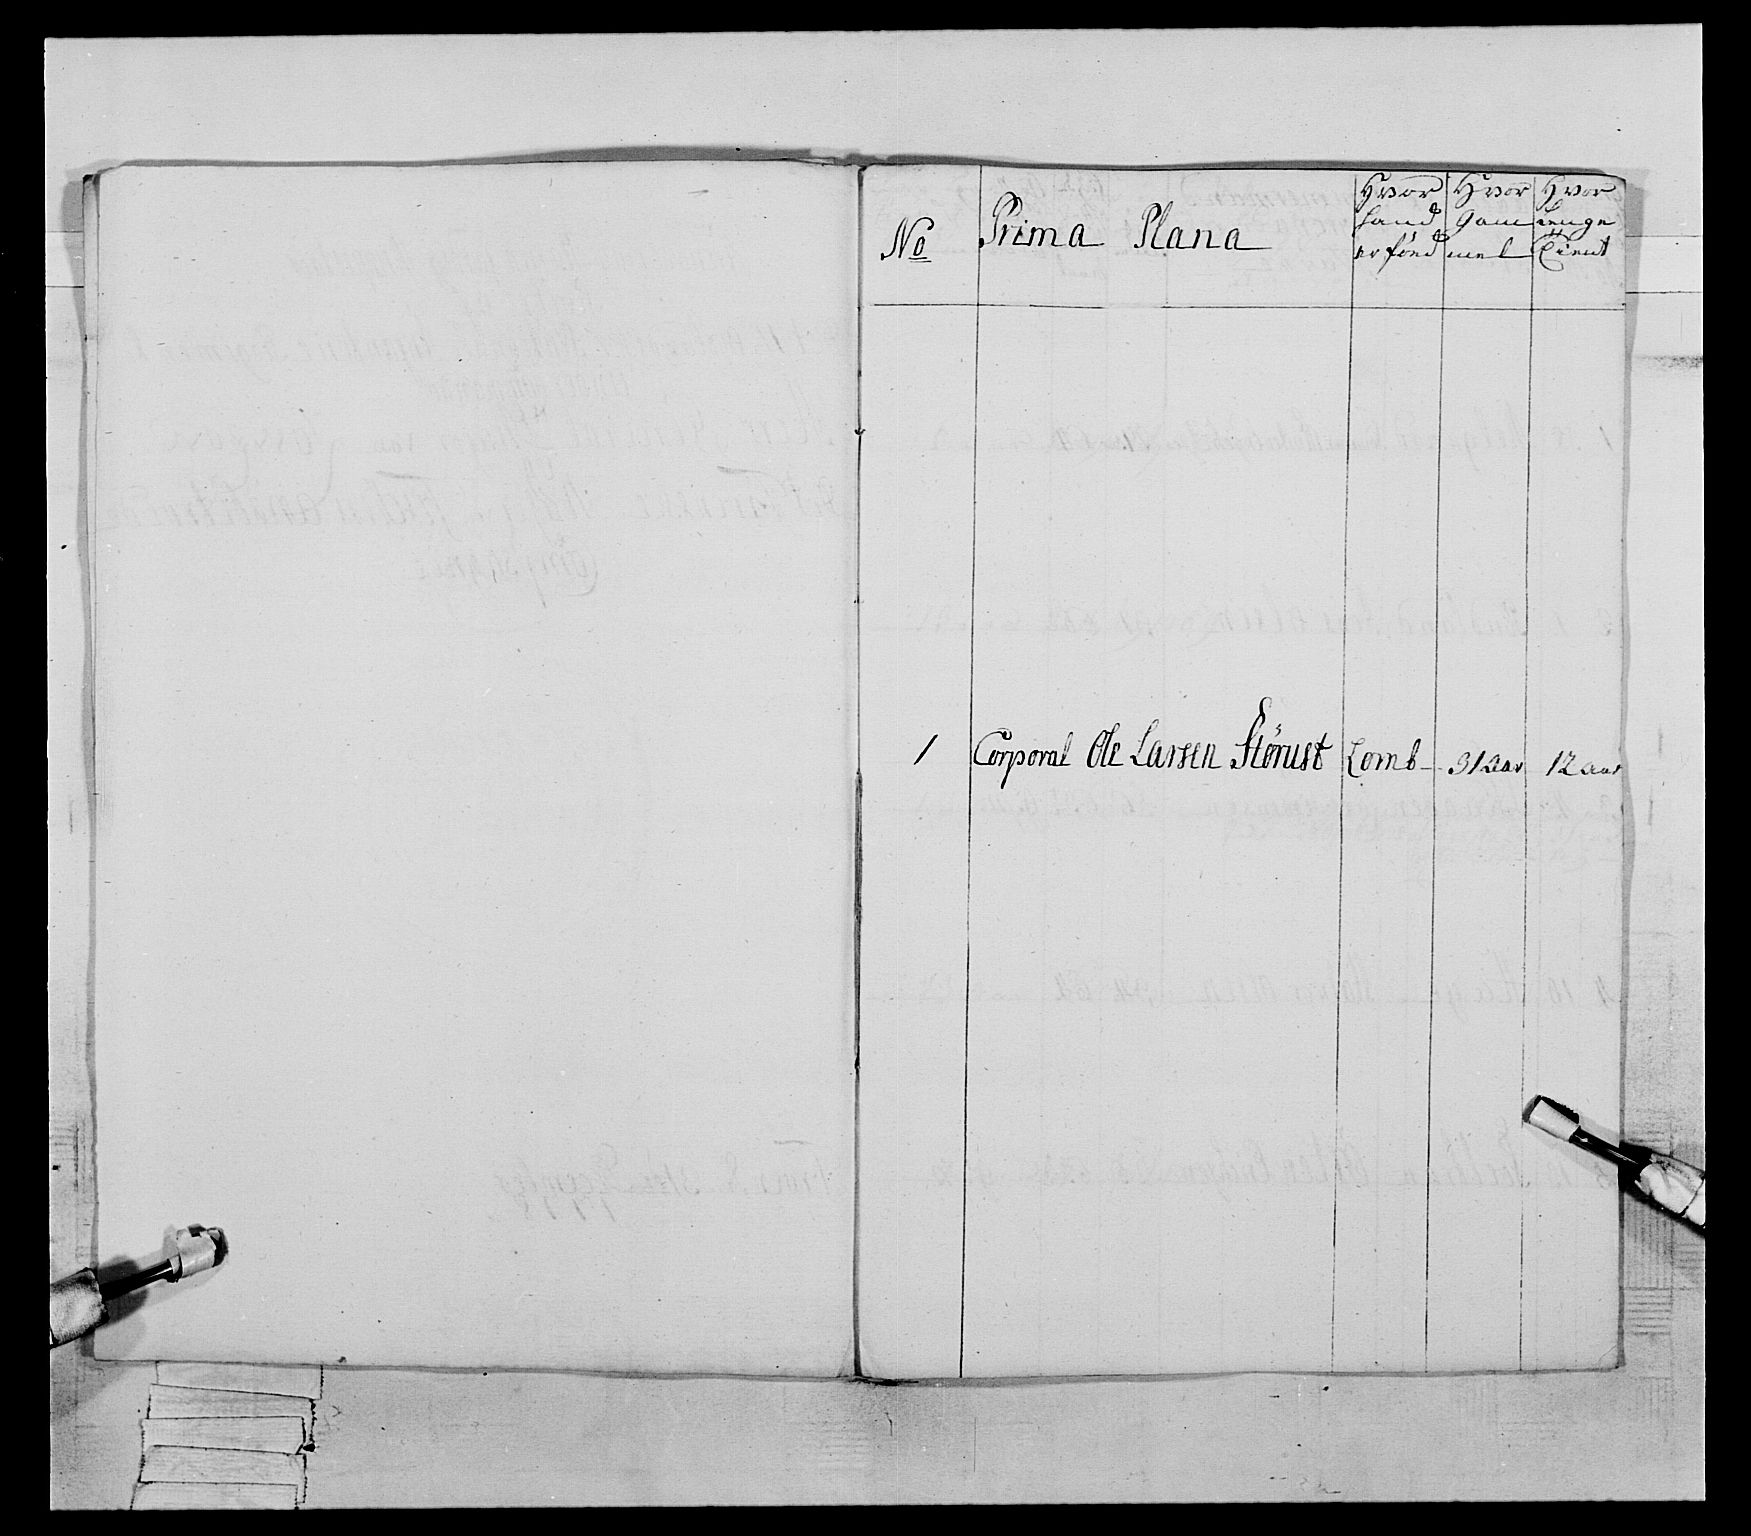 No Prima Plana
Hvor hand er föed
Hvor Gammel
Hvor lenge Tient
1 Corporal Ole Larsen Störust Lomb 31 Aar 12 aar